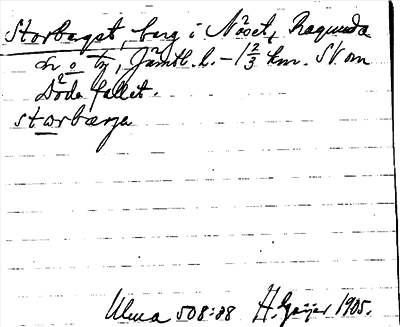 Storberget, berg i Näset, Ragunda
sn o tg, Jämtl. l. – 1 2/3 km. SV om
Döda fallet.
storbærja
Ulma 508:88 H. Geijer 1905.